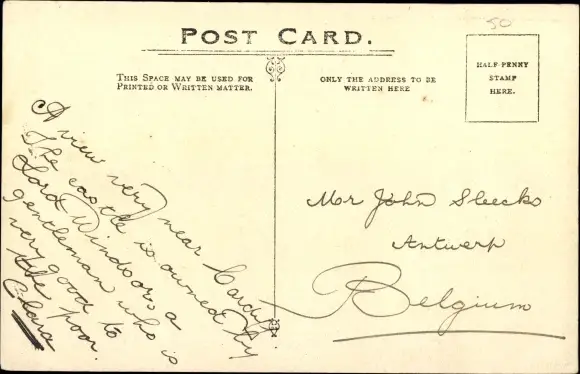 50
POST CARD.
THIS SPACE MAY BE USED FOR
PRINTED OR WRITTEN MATTER.
ONLY THE ADDRESS TO BE
WRITTEN HERE
HALF-PENNY
STAMP
HERE.
A view very near Cardiff
The castle is owned by
Lord Windsor a
gentleman who is
very good to
the poor.
Clara
Mr John Sleecks
Antwerp
Belgium